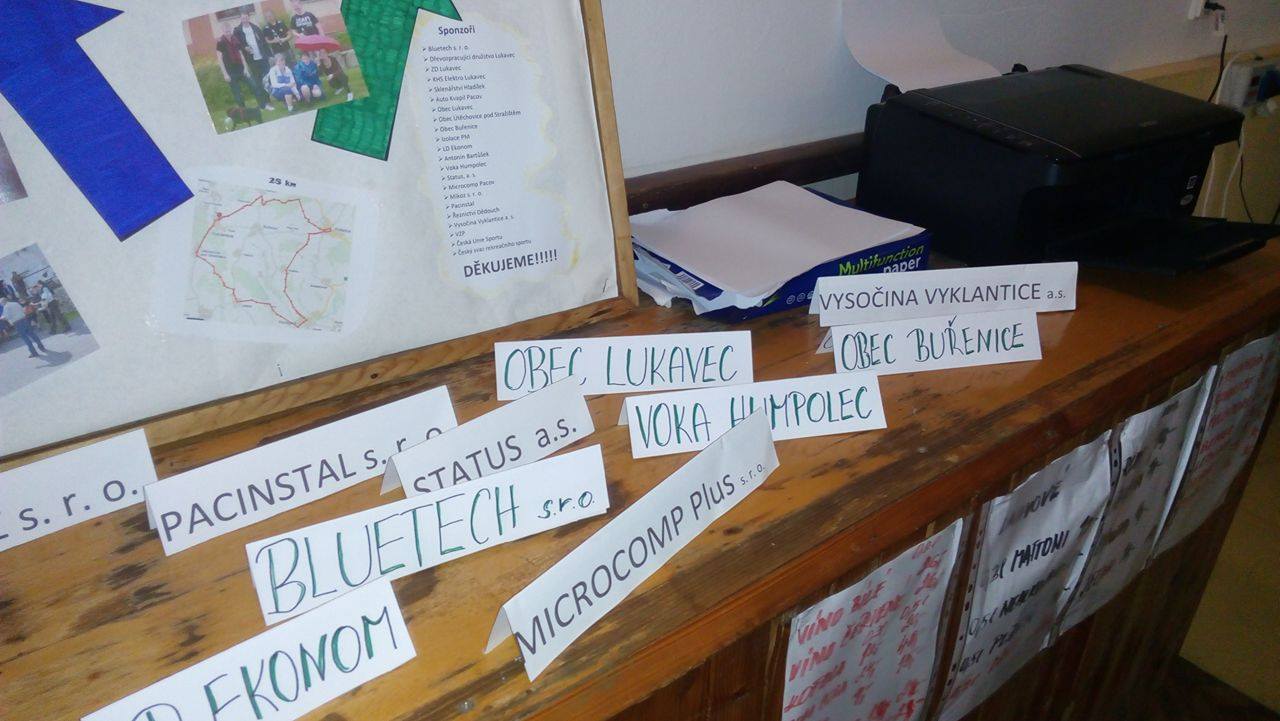 Sponzoři
➢ Bluetech s. r. o.
➢ Dřevozpracující družstvo Lukavec
➢ ZD Lukavec
➢ KHS Elektro Lukavec
➢ Sklenářství Hladílek
➢ Auto Kvapil Pacov
➢ Obec Lukavec
➢ Obec Útěchovice pod Stražištěm
➢ Obec Buřenice
➢ Izolace PM
➢ LD Ekonom
➢ Antonín Bartůšek
➢ Voka Humpolec
➢ Status, a. s.
➢ Microcomp Pacov
➢ Mikoz s. r. o.
➢ Pacinstal
➢ Řeznictví Dědouch
➢ Vysočina Vyklantice a. s.
➢ VZP
➢ Česká Unie Sportu
➢ Český svaz rekreačního sportu
DĚKUJEME!!!!!
25 km
Multifunction
paper
VYSOČINA VYKLANTICE a.s.
OBEC BUŘENICE
OBEC LUKAVEC
VOKA HUMPOLEC
s. r. o.
PACINSTAL s. r. o.
STATUS a.s.
BLUETECH s.r.o.
MICROCOMP Plus s. r. o.
EKONOM
VÍNO BÍLÉ
VÍNO
KOFOLA
MATTONI